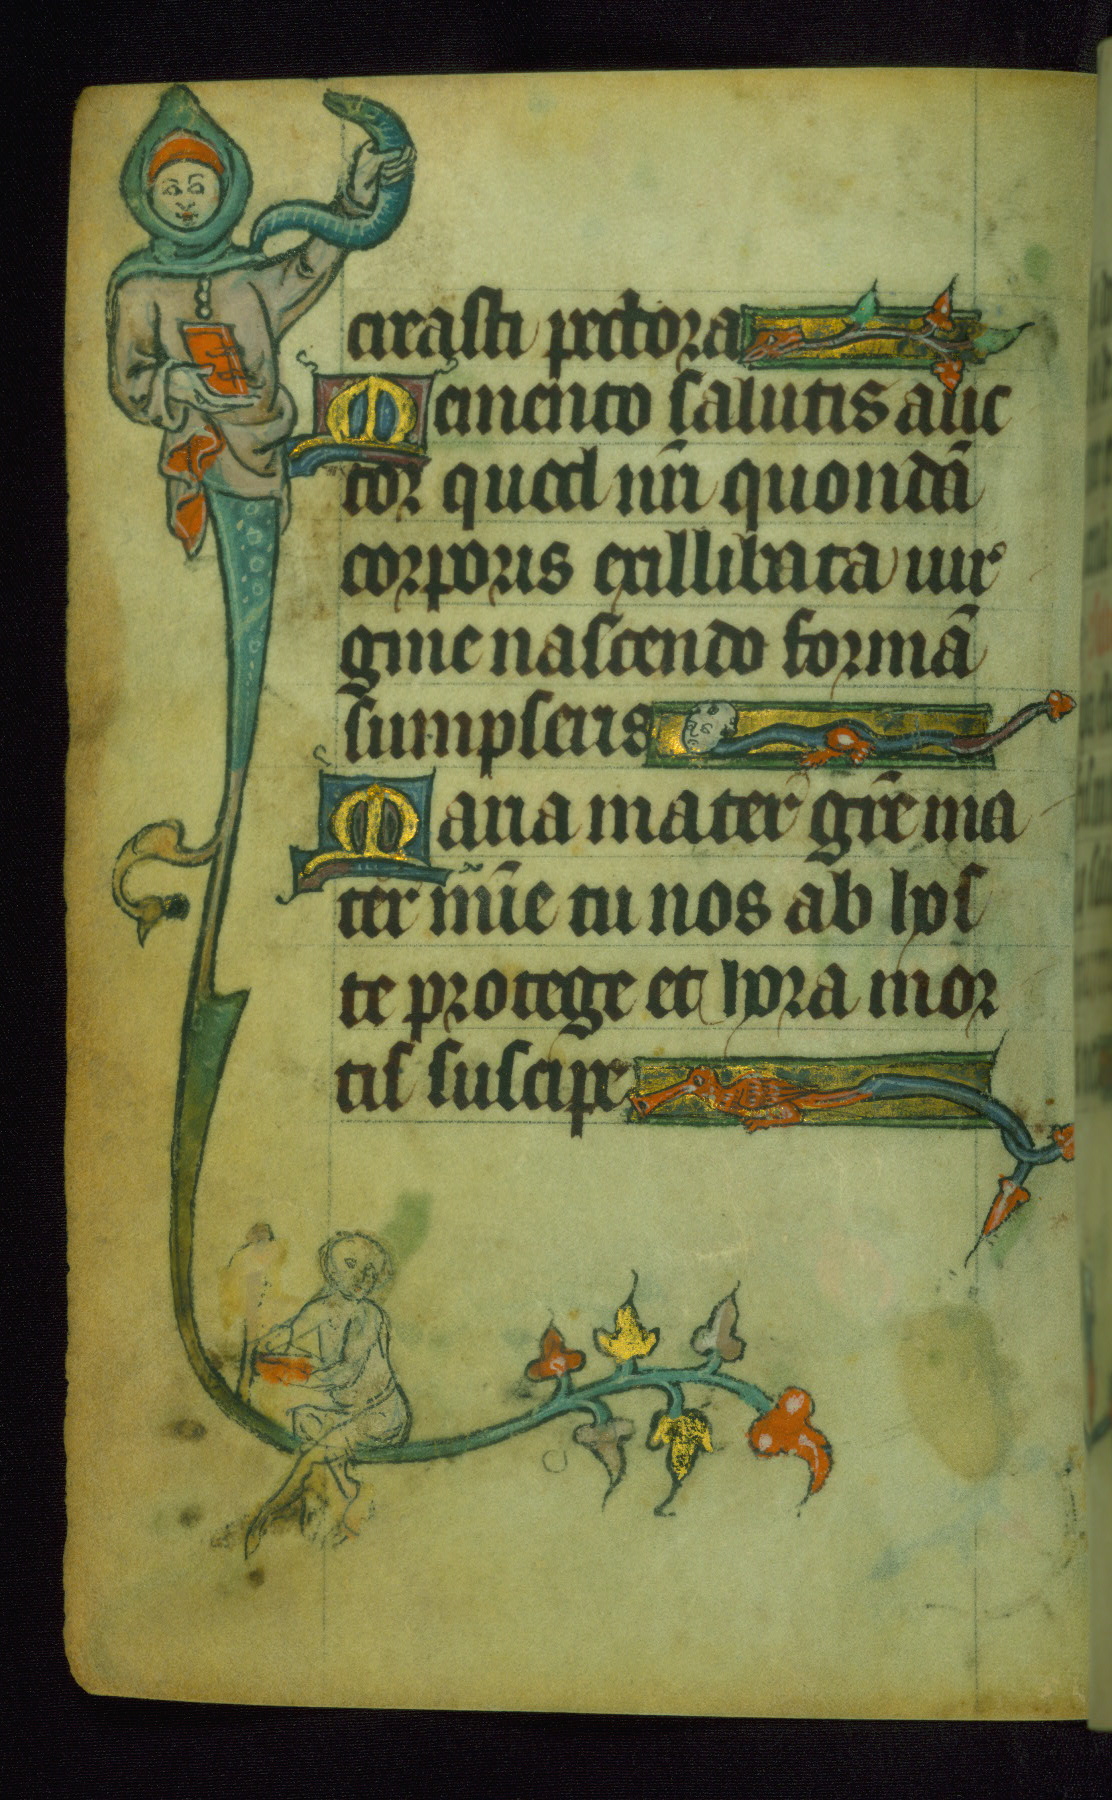 creasti pectora
Memento salutis auc
tor quod nr̄i quondā
corporis exillibata uir
gine nascendo formā
sumpseris
Maria mater gr̄e ma
ter mīe tu nos ab hos
te protege et hora mor
tis suscipe